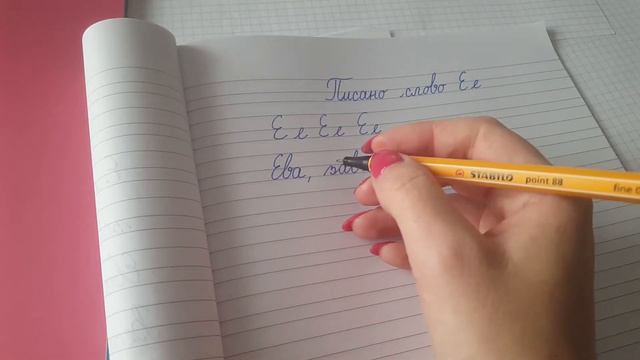 Писано слово Е е
Е е Е е Е е
Ева,
STABILO point 88